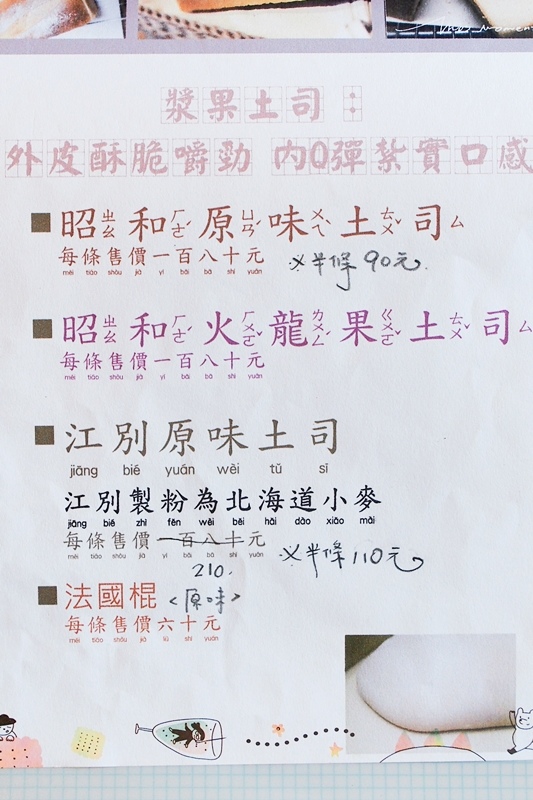 漿果土司：
外皮酥脆嚼勁 內Q彈紮實口感
昭ㄓㄠ和ㄏㄜˊ原ㄩㄢˊ味ㄨㄟˋ土ㄊㄨˇ司ㄙ
每條售價一百八十元 ※半條90元.
měi tiáo shòu jià yì bǎi bā shí yuán
昭ㄓㄠ和ㄏㄜˊ火ㄏㄨㄛˇ龍ㄌㄨㄥˊ果ㄍㄨㄛˇ土ㄊㄨˇ司ㄙ
每條售價一百八十元
měi tiáo shòu jià yì bǎi bā shí yuán
江別原味土司
jiāng bié yuán wèi tǔ sī
江別製粉為北海道小麥
jiāng bié zhì fěn wéi běi hǎi dào xiǎo mài
每條售價一百八十元 ※半條110元
měi tiáo shòu jià yì bǎi bā shí yuán
210.
法國棍 <原味>
每條售價六十元
měi tiáo shòu jià liù shí yuán